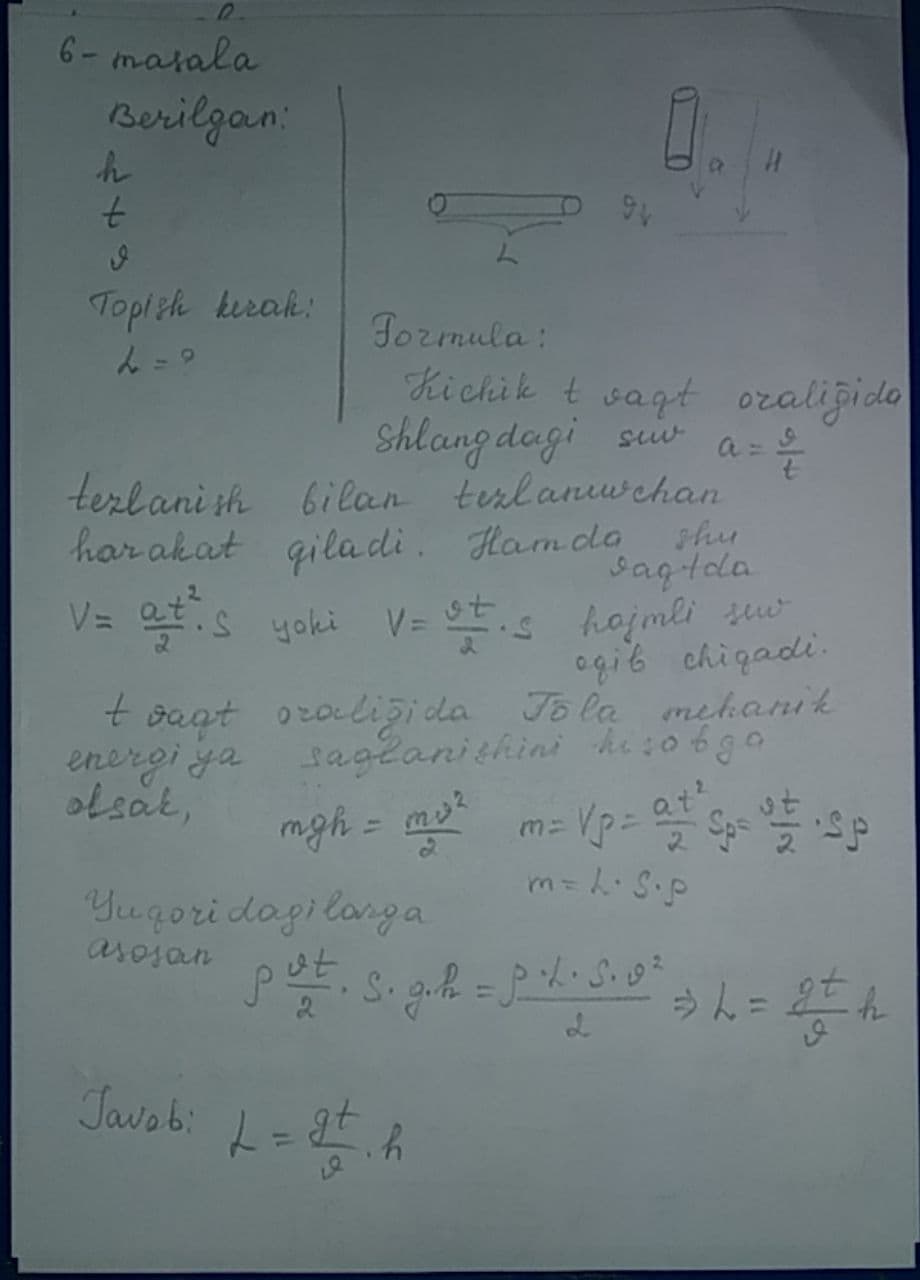 6- masala
Berilgan:
h
t
υ
Topish kerak:
L = ?
a
H
υ↓
L
Formula:
Kichik t vaqt oralig̃ida
Shlangdagi suv a = υ/t
tezlanish bilan tezlanuvchan
harakat qiladi. Hamda shu
vaqtda
V = at²/2 · S yoki V = υt/2 · S hajmli suv
oqib chiqadi.
t vaqt oralig̃ida Tõla mehanik
energiya saqlanishini hisobga
olsak,
mgh = mυ²/2 m = Vρ = at²/2 Sρ = υt/2 · Sρ
m = L · S · ρ
Yuqoridagilarga
asosan
ρ υt/2 · S · g · h = ρ · L · S · υ²/2 ⇒ L = gt/υ h
Javob: L = gt/υ · h